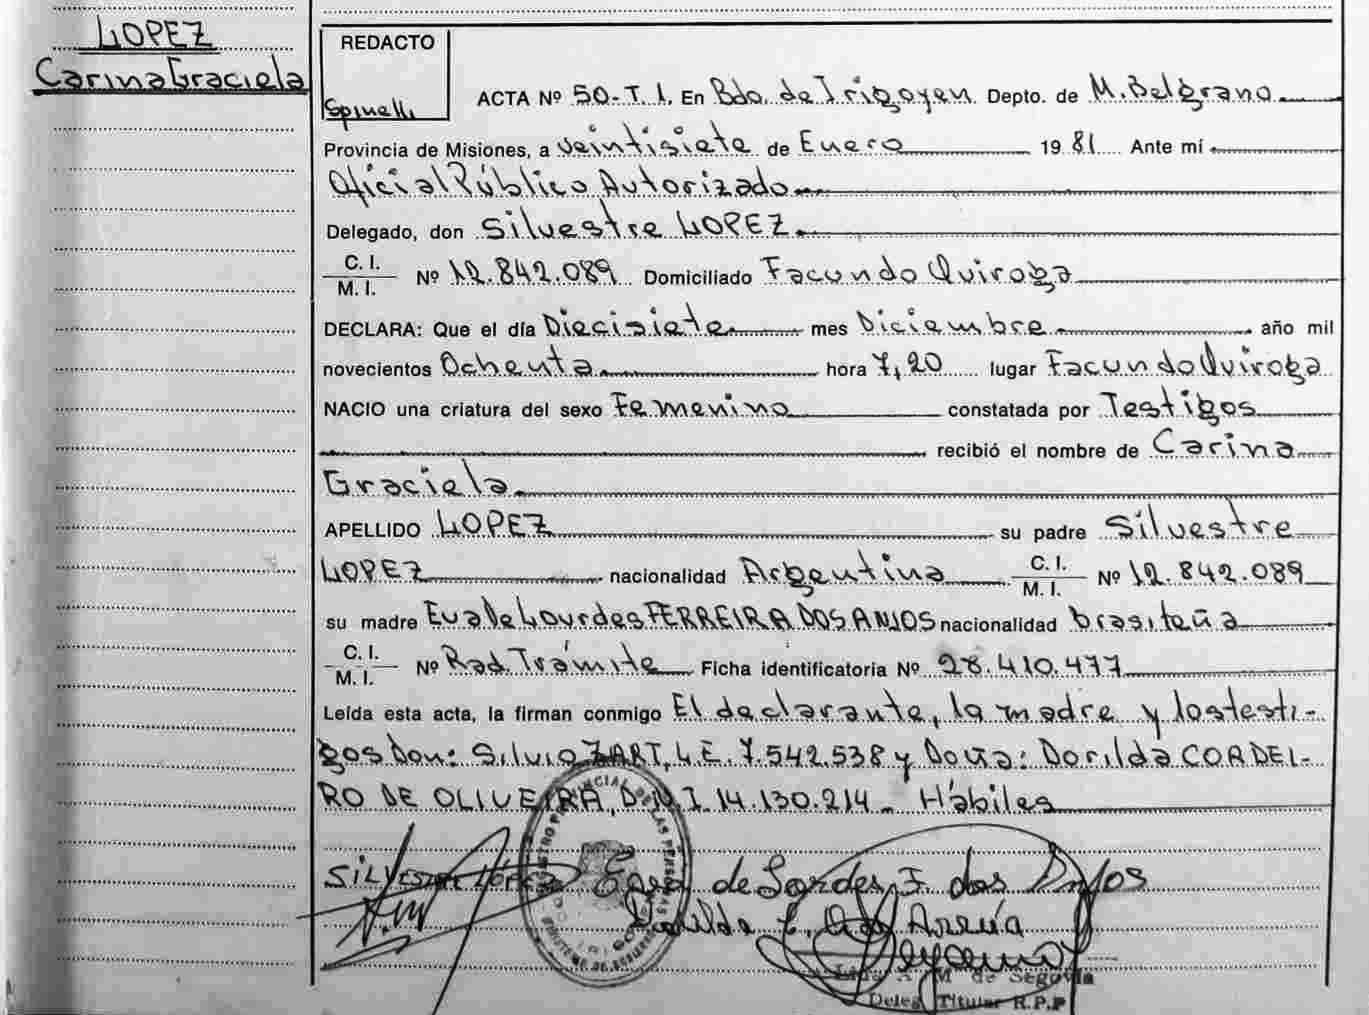 LOPEZ
Carina Graciela
REDACTO
Spinelli
ACTA Nº 50-T.I. En Bdo. de Irigoyen Depto. de M. Belgrano
Provincia de Misiones, a veintisiete de Enero 19 81 Ante mí
Oficial Público Autorizado
Delegado, don Silvestre LOPEZ.
C. I.
M. I. Nº 12.842.089 Domiciliado Facundo Quiroga
DECLARA: Que el día Diecisiete mes Diciembre año mil
novecientos Ochenta hora 7,20 lugar Facundo Quiroga
NACIO una criatura del sexo Femenino constatada por Testigos
recibió el nombre de Carina
Graciela
APELLIDO LOPEZ su padre Silvestre
LOPEZ nacionalidad Argentina C. I. M. I. Nº 12.842.089
su madre Eva de Lourdes FERREIRA DOS ANJOS nacionalidad brasileña
C. I.
M. I. Nº Rad. Trámite Ficha identificatoria Nº 28.410.477
Leída esta acta, la firman conmigo El declarante, la madre y los testi-
gos Don: Silvio ZART, L.E. 7.542.538 y Doña: Dorilda CORDEI-
RO DE OLIVEIRA, D.N.I. 14.130.214 - Hábiles
Silvestre López Eva de Lordes F. dos Anjos
M. de Segovia
Deleg. Titular R.P.P